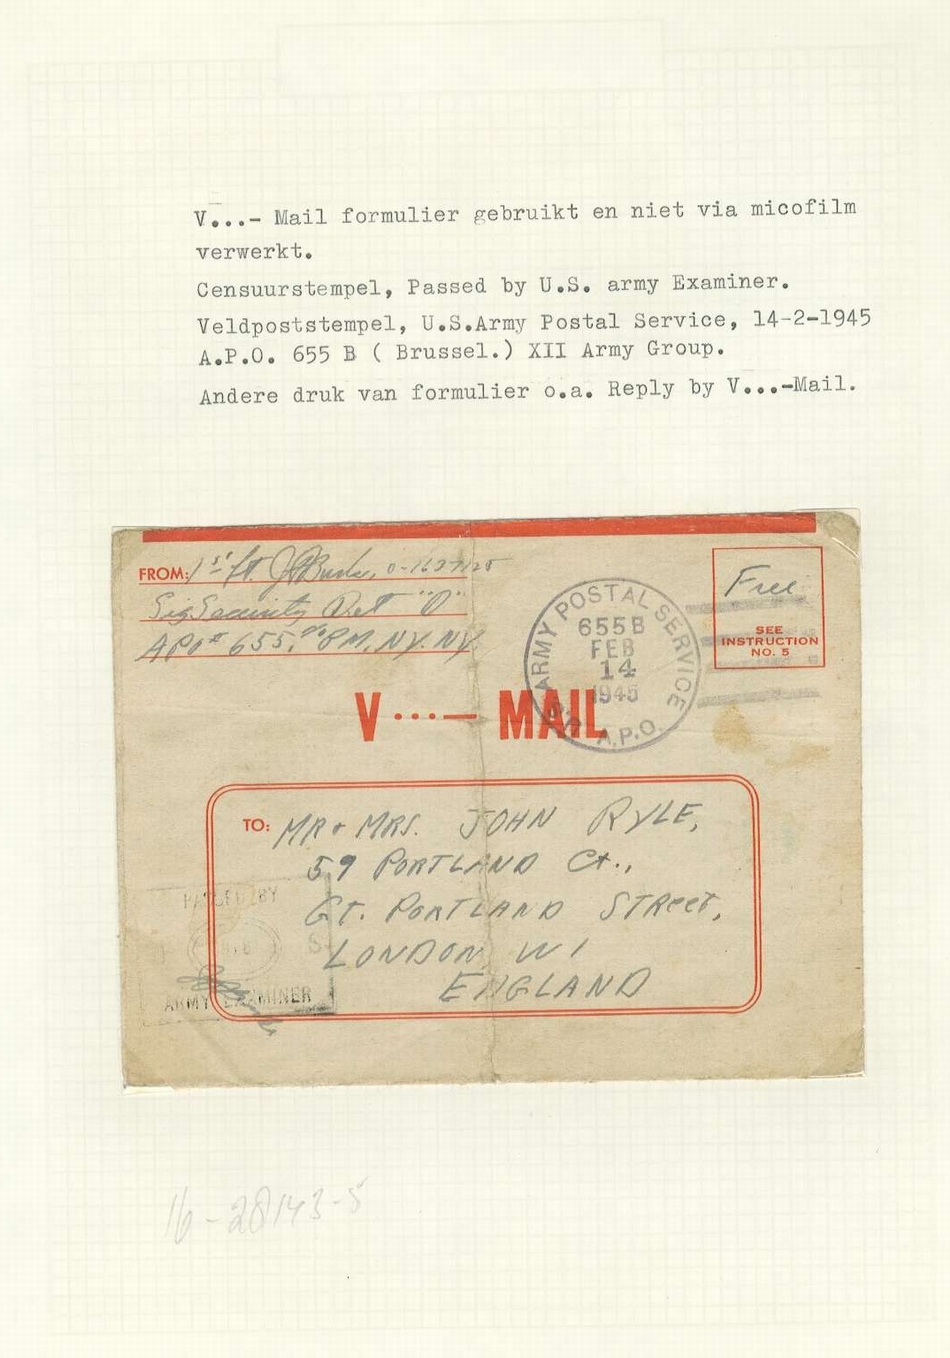 V...- Mail formulier gebruikt en niet via micofilm
verwerkt.
Censuurstempel, Passed by U.S. army Examiner.
Veldpoststempel, U.S.Army Postal Service, 14-2-1945
A.P.O. 655 B ( Brussel.) XII Army Group.
Andere druk van formulier o.a. Reply by V...-Mail.
FROM: 1st Lt. J
Sig Security Det "D"
APO # 655, % PM, NY. NY.
Free
SEE
INSTRUCTION
NO. 5
ARMY POSTAL SERVICE
655B
FEB
14
1945
A.P.O.
V ...— MAIL
TO: MR + MRS. JOHN RYLE,
59 PORTLAND Ct.,
GT. PORTLAND STREET,
LONDON W1
ENGLAND
PASSED BY
S
ARMY EXAMINER
16-28143-5